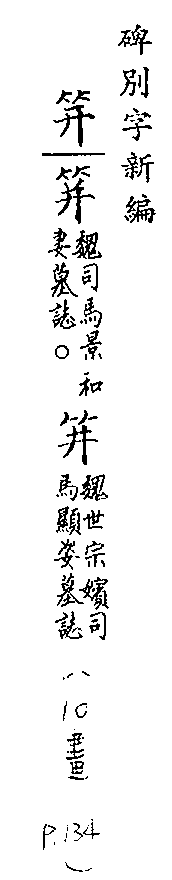 碑別字新編
笄
筓 魏司馬景和
妻墓誌。
笄 魏世宗嬪司
馬顯姿墓誌
(10畫
P.134)